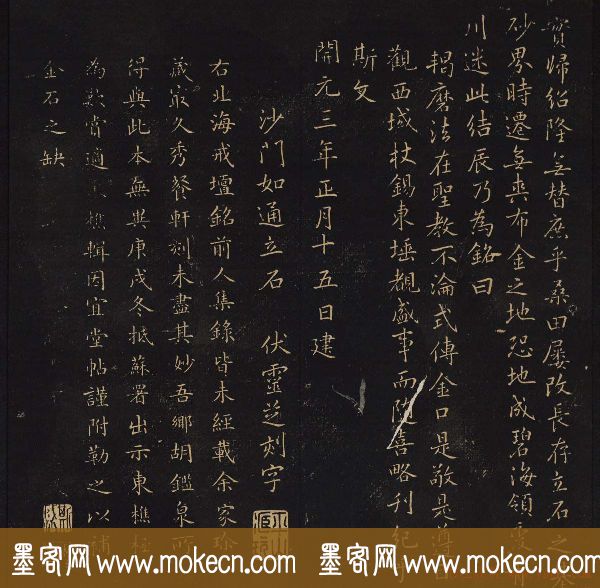 實歸紹隆無替庶乎桑田屢改長存立石之
砂界時遷無爽布金之地恐地成碧海領
川迷此結辰乃為銘曰
羯磨法在聖教不淪式傳金口是敬是遵
觀西域杖錫東埵覩盛事而隨喜略刊紀
斯文
開元三年正月十五日建
沙門如通立石 伏靈芝刻字
右北海戒壇銘前人集錄皆未經載余家珍
藏最久秀餐軒刻未盡其妙吾鄉胡鑑泉所
得與此本無異庚戌冬抵蘇署出示東樵
為歎賞適 樵輯因宜堂帖謹附勒之以補
金石之缺
墨客网 www.mokecn.com 墨客网 www.mokecn.com